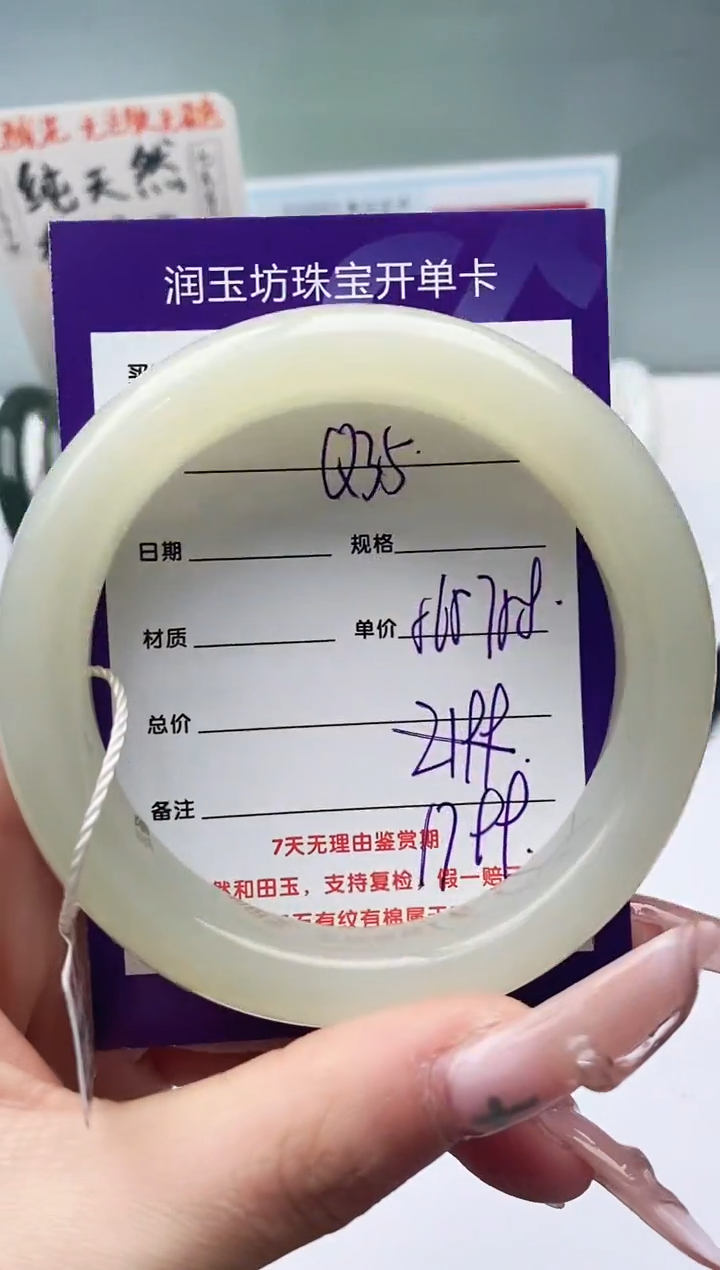 纯天然
润玉坊珠宝开单卡
买
Q35.
日期
规格
材质
单价
总价
2199.
备注
1799.
7天无理由鉴赏期
然和田玉，支持复检，假一赔
石有纹有棉属于